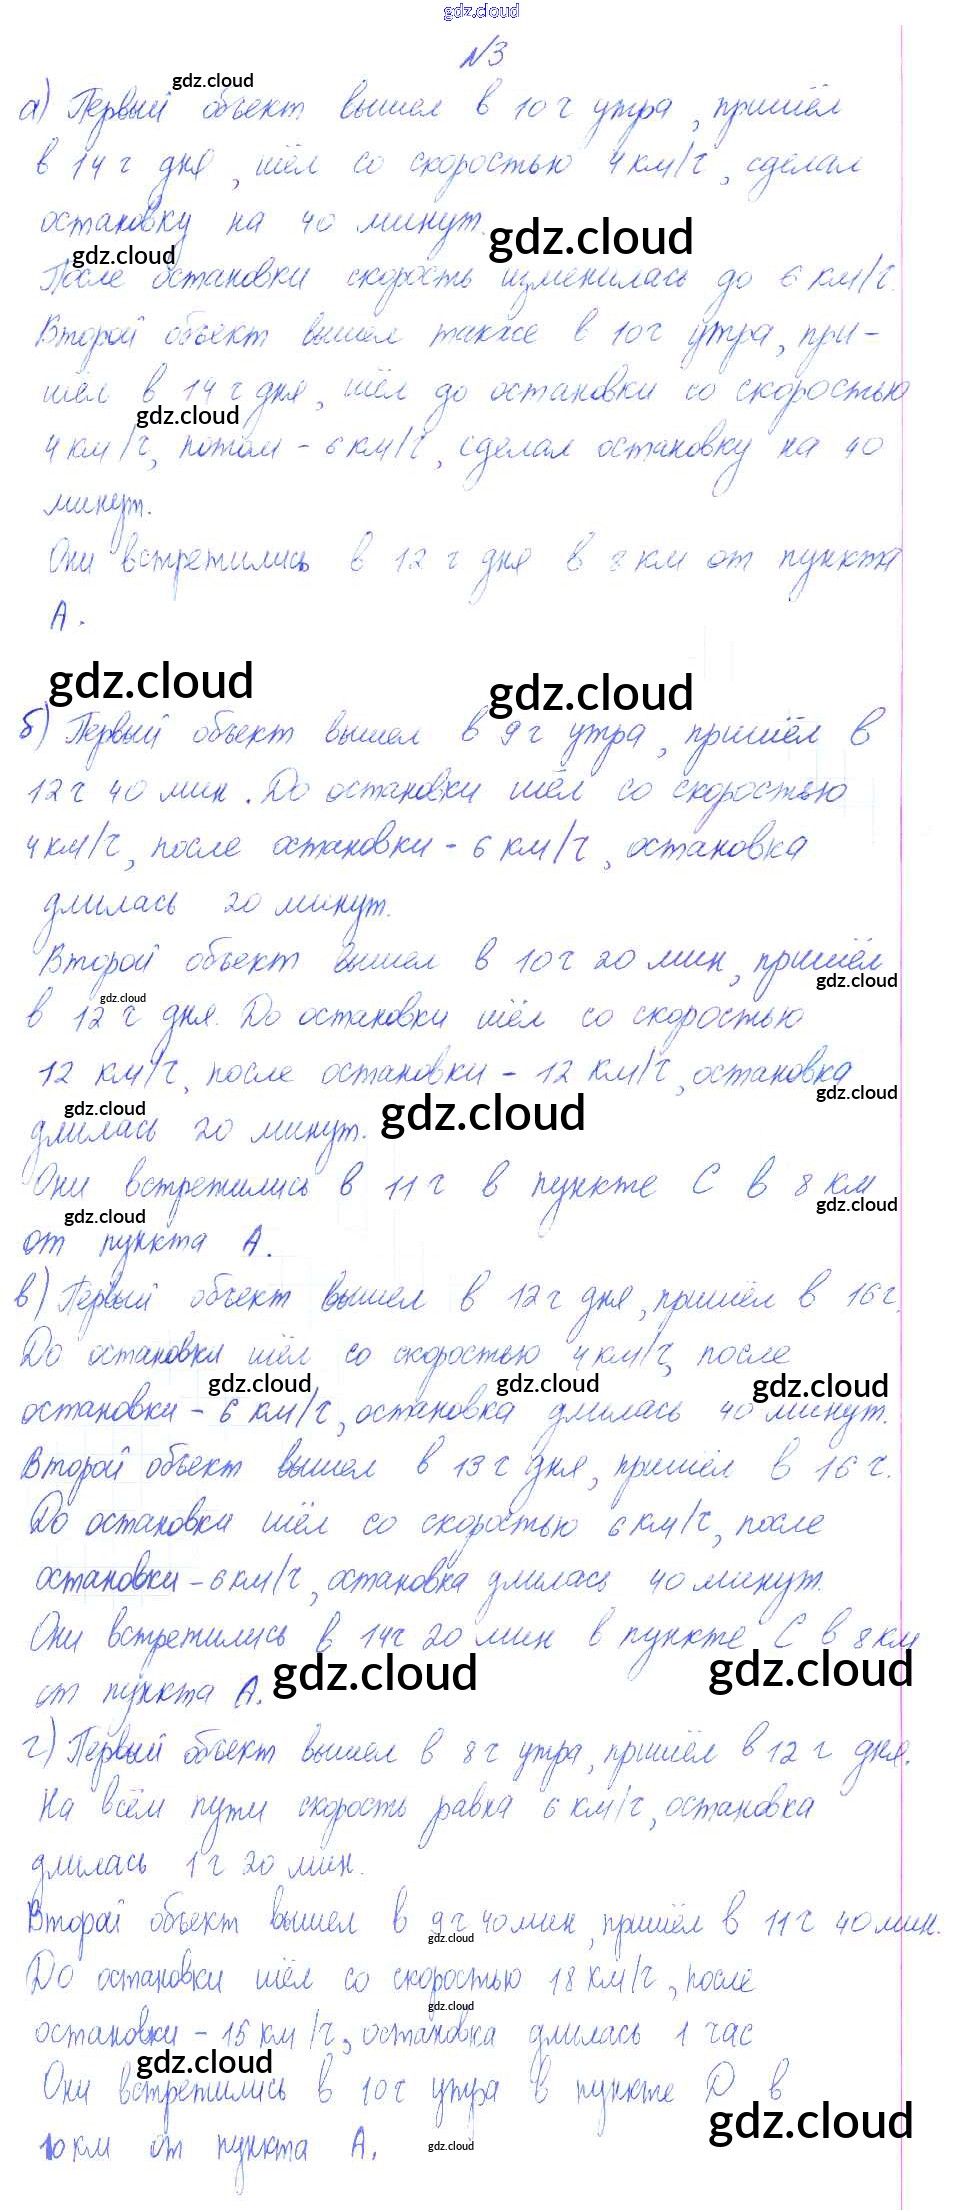 gdz.cloud
№3
gdz.cloud
а) Первый объект вышел в 10 ч утра, пришёл
в 14 ч дня, шёл со скоростью 4 км/ч, сделал
остановку на 40 минут.
gdz.cloud
gdz.cloud
После остановки скорость изменилась до 6 км/ч.
Второй объект вышел также в 10 ч утра, при-
шёл в 14 ч дня, шёл до остановки со скоростью
gdz.cloud
4 км/ч, потом - 6 км/ч, сделал остановку на 40
минут.
Они встретились в 12 ч дня в 8 км от пункта
А.
gdz.cloud
gdz.cloud
б) Первый объект вышел в 9 ч утра, пришёл в
12 ч 40 мин. До остановки шёл со скоростью
4 км/ч, после остановки - 6 км/ч, остановка
длилась 20 минут.
Второй объект вышел в 10 ч 20 мин, пришёл
gdz.cloud
gdz.cloud
в 12 ч дня. До остановки шёл со скоростью
12 км/ч, после остановки - 12 км/ч, остановка
gdz.cloud
gdz.cloud
gdz.cloud
длилась 20 минут.
Они встретились в 11 ч в пункте С в 8 км
gdz.cloud
gdz.cloud
от пункта А.
в) Первый объект вышел в 12 ч дня, пришёл в 16 ч.
До остановки шёл со скоростью 4 км/ч, после
gdz.cloud
gdz.cloud
gdz.cloud
остановки - 6 км/ч, остановка длилась 40 минут.
Второй объект вышел в 13 ч дня, пришёл в 16 ч.
До остановки шёл со скоростью 6 км/ч, после
остановки - 6 км/ч, остановка длилась 40 минут.
Они встретились в 14 ч 20 мин в пункте С в 8 км
gdz.cloud
gdz.cloud
от пункта А.
г) Первый объект вышел в 8 ч утра, пришёл в 12 ч дня.
На всём пути скорость равна 6 км/ч, остановка
длилась 1 ч 20 мин.
Второй объект вышел в 9 ч 40 мин, пришёл в 11 ч 40 мин.
gdz.cloud
До остановки шёл со скоростью 18 км/ч, после
gdz.cloud
остановки - 15 км/ч, остановка длилась 1 час
gdz.cloud
Они встретились в 10 ч утра в пункте D в
gdz.cloud
10 км от пункта А.
gdz.cloud